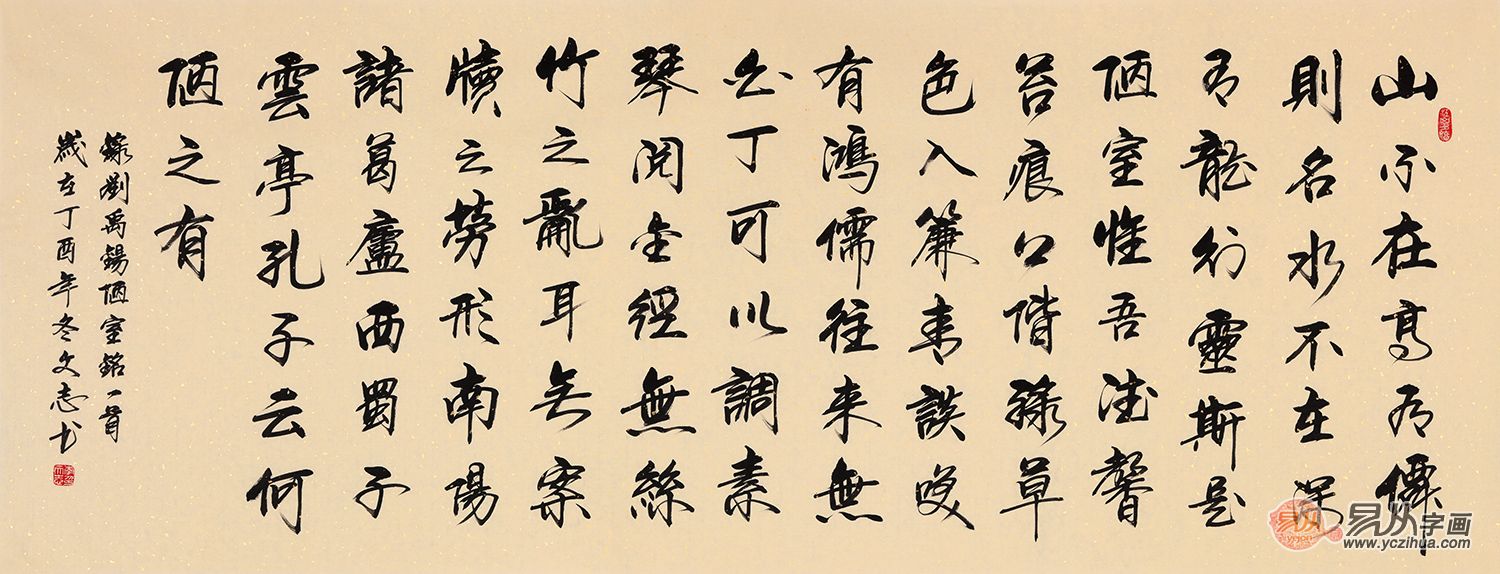 山不在高有僊
則名水不在深
有龍則靈斯是
陋室惟吾德馨
苔痕上階綠草
色入簾青談笑
有鴻儒往来無
白丁可以調素
琴閱金經無絲
竹之亂耳无案
牘之勞形南陽
諸葛廬西蜀子
雲亭孔子云何
陋之有
錄劉禹錫陋室銘一首
歲在丁酉年冬文志书
易从字画
www.yczihua.com